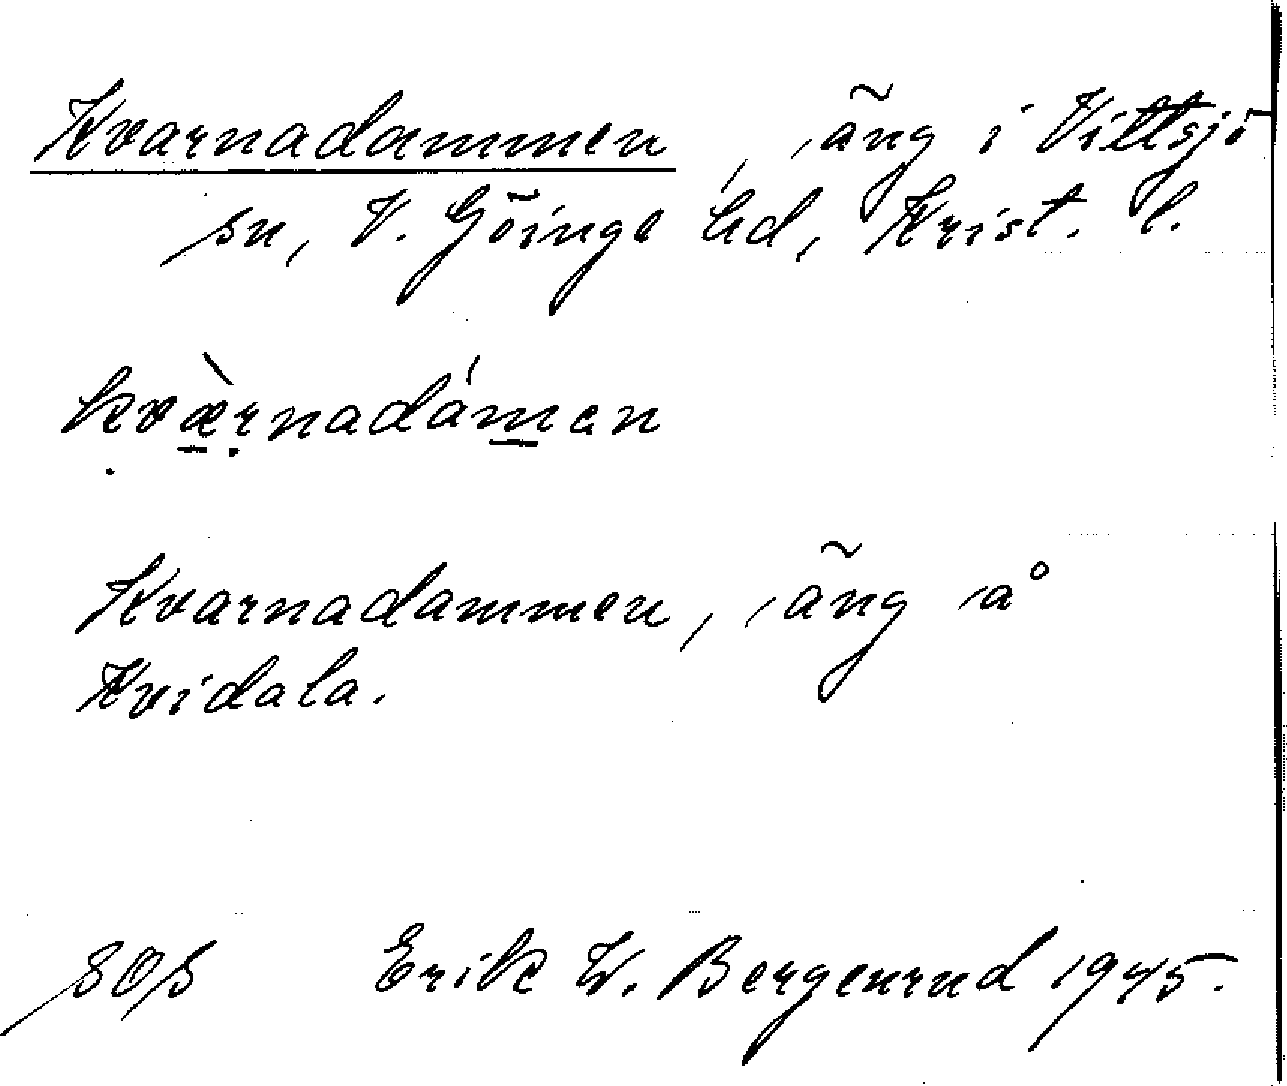 Kvarnadammen, äng i Vittsjö
sn, V. Göinge hd, Krist. l.
kvæ̀rnadámen
Kvarnadammen, äng å
Kvidala.
SOS Erik W. Bergenrud 1945.